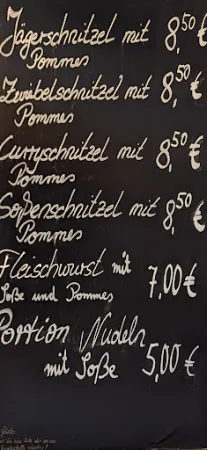 Jägerschnitzel mit 8,50 €
Pommes
Zwiebelschnitzel mit 8,50 €
Pommes
Curryschnitzel mit 8,50 €
Pommes
Soßenschnitzel mit 8,50 €
Pommes
Fleischwurst mit 7,00 €
Soße und Pommes
Portion Nudeln
mit Soße 5,00 €